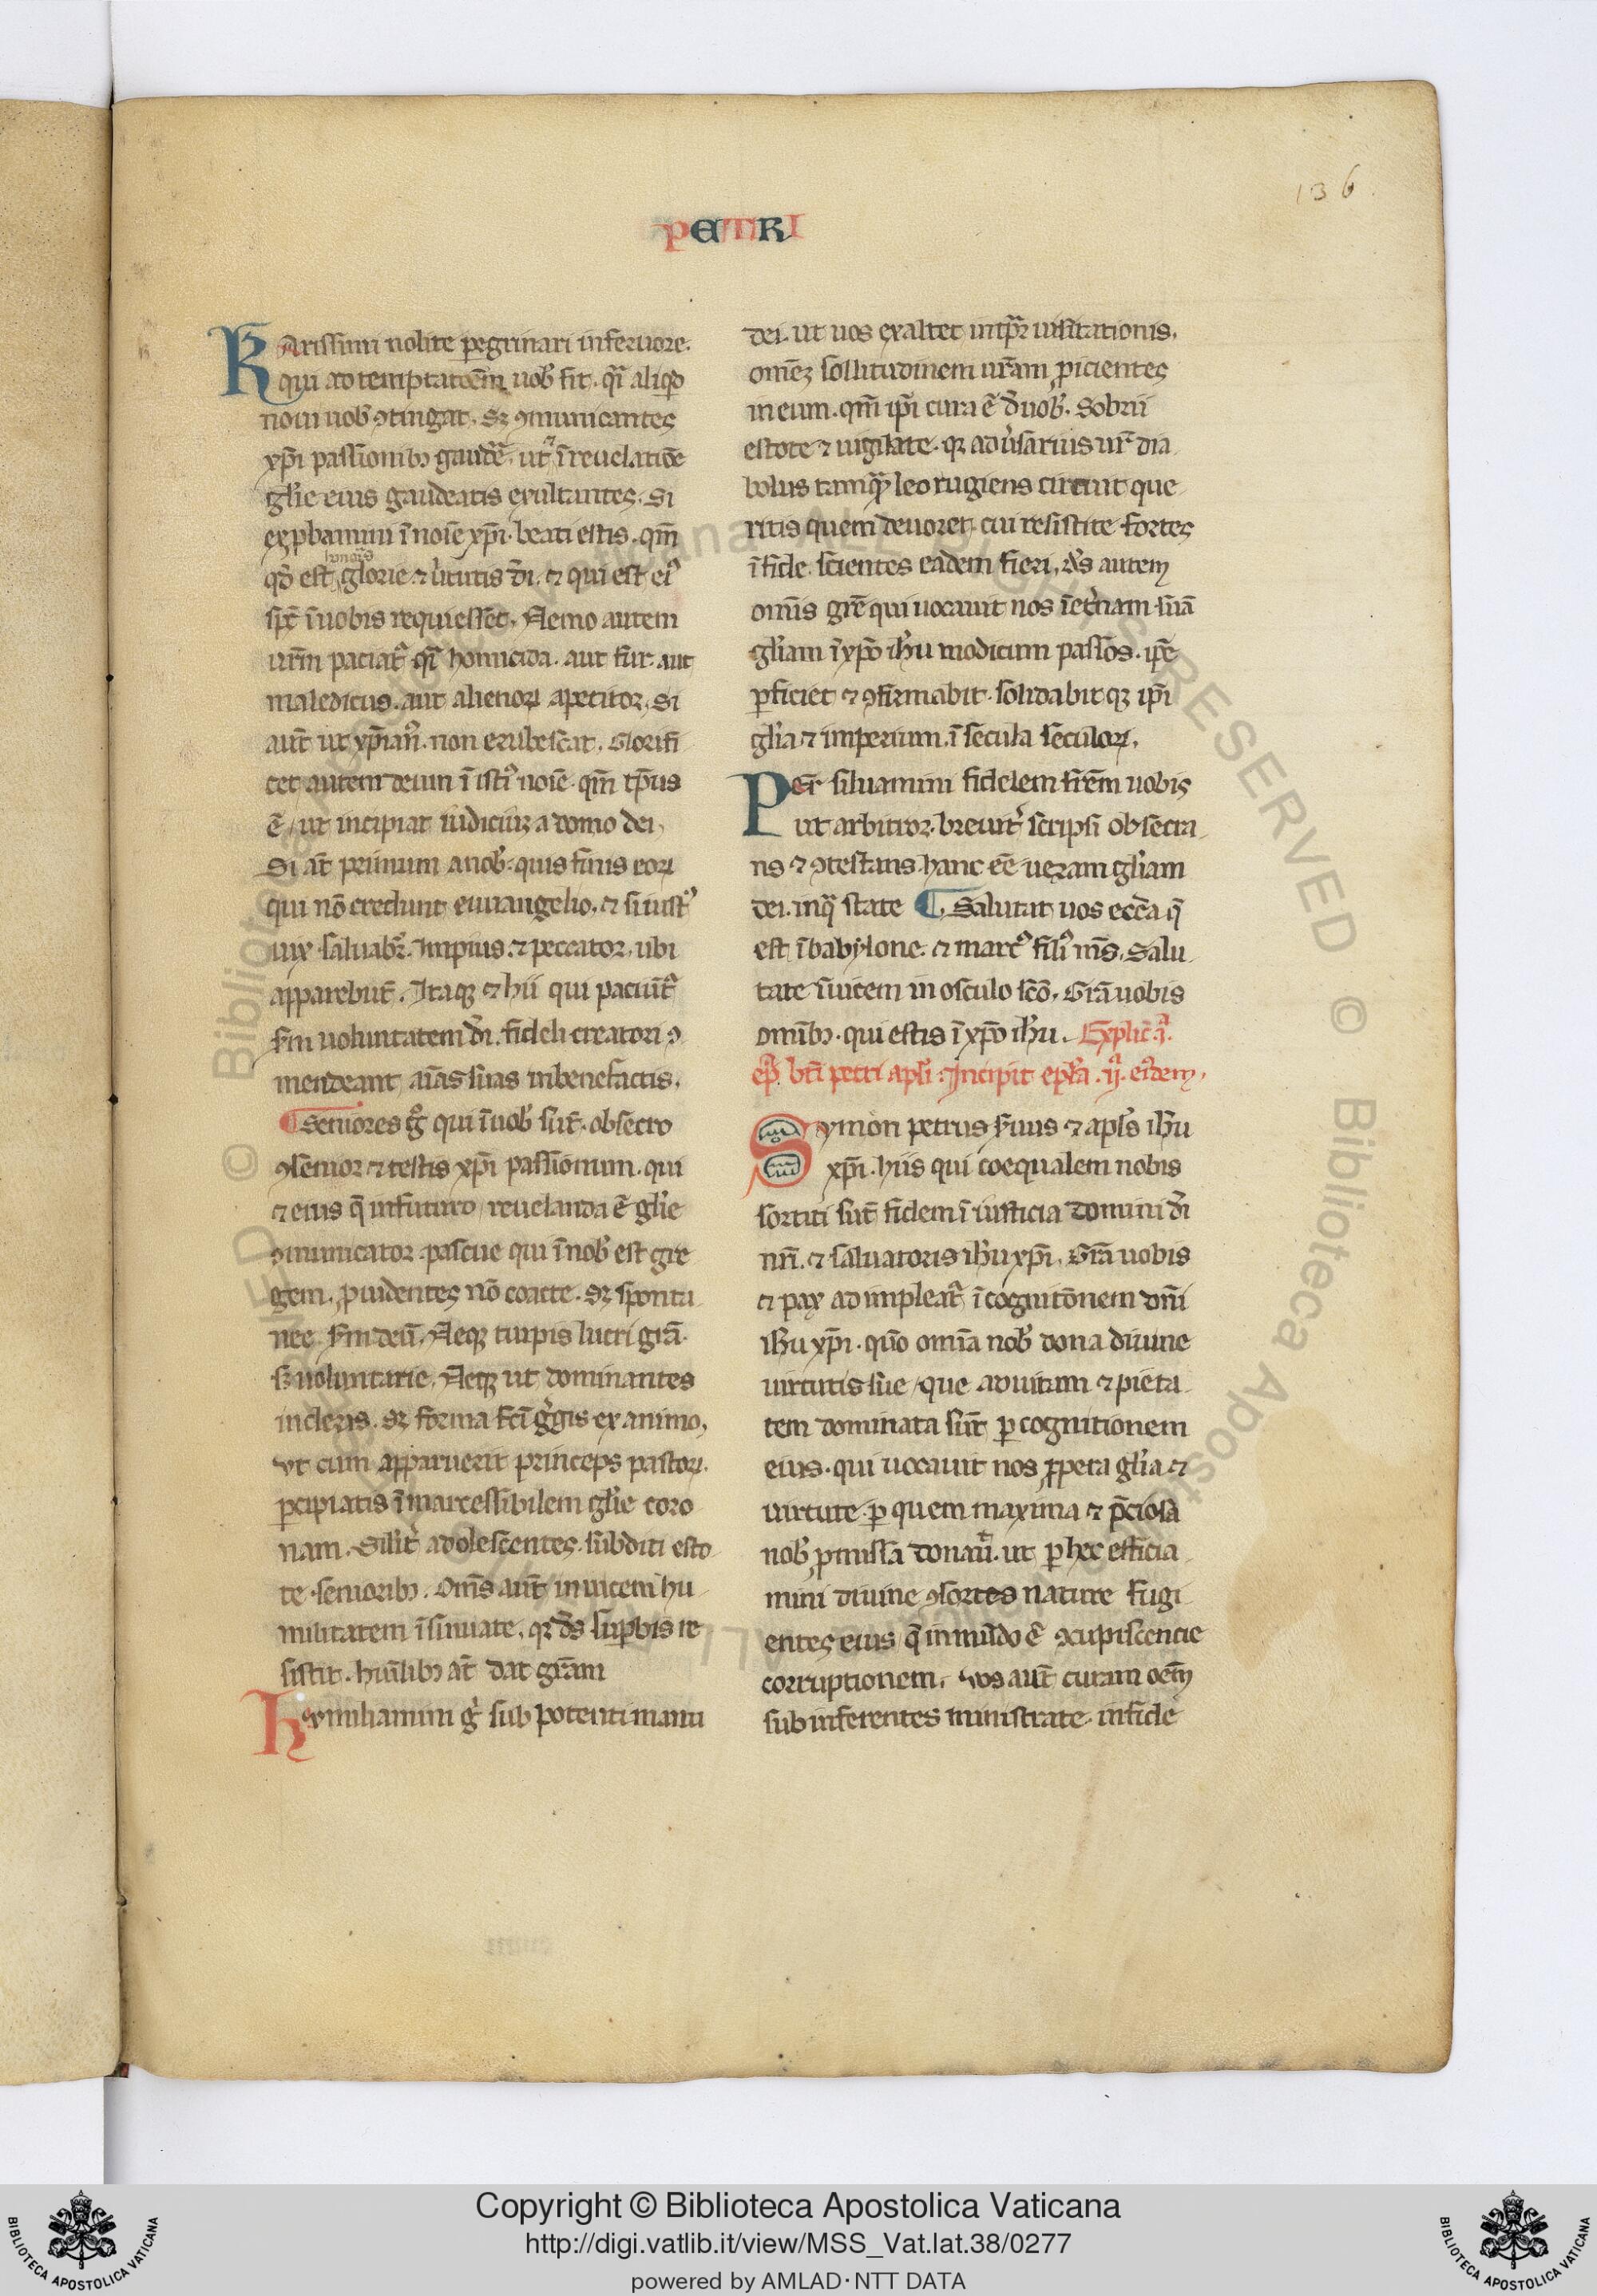 136
PETRI
Karissimi nolite pegrinari in feruore.
qui ad temptatōem uob̕ fit. q̄i aliqͥd
noui uob̕ ꝯtingat. Sꝫ ꝯmunicantes
xp̄i passionibꝫ gaudēte. ut ⁊ ī reuelatiōe
gl̕ie eius gaudeatis exultantes. Si
exꝓbramini ī noīe xp̄i. beati estis. qm̄
honoris
qd̕ est glorie ⁊ u̕tutis d̄i. ⁊ qui est eiꝰ
sp̄c ī uobis requiescet. Nemo autem
ur̄m paciatᷣ qͣi homicida. aut fur. aut
maledicus. aut alienoꝝ apetitor. Si
aut̄ ut xp̄ianꝰ. non erubescat. Glorifi
cet autem deum ī istꝰ noīe. qm̄ tp̄us
ē ut incipiat iudiciuꝫ a domo dei.
Si at̄ primum a nob̕. quis finis eoꝝ
qui nō credunt euuangelio. ⁊ si iustꝰ
uix saluabᷣ. Impius ⁊ peccator. ubi
apparebūt. Itaqꝫ ⁊ hii qui paciūtᷣ
scd̄m uoluntatem d̄i. fideli creatori ꝯ
mendeant aīas suas in benefactis.
Seniores gͦ qui ī uob̕ sūt. obsecro
ꝯsenior ⁊ testis xp̄i passionum. qui
⁊ eius q̄ in futuro reuelanda ē gl̕ie
ꝯmunicator. pascite qui ī uob̕ est gre
gem. ꝓuidentes nō coacte. sꝫ sponta
nee scd̄m deū. Neqꝫ turpis lucri gr̄a.
sꝫ uoluntarie. Neqꝫ ut dominantes
in cleris. sꝫ forma fc̄i gͥgis ex animo.
ut cum apparuerit princeps pastoꝝ.
ꝑcipiatis īmarcessibilem gl̕ie coro
nam. Silit̕ adolescentes subditi esto
te senioribꝫ. Om̄s aut̄ inuicem hu
militatem īsinuate. qꝛ d̄s suꝑbis re
sistit. humilibꝫ at̄ dat gr̄am
humiliamini gͥ sub potenti manu
dei. ut uos exaltet in tp̄r uisitationis.
omēꝫ sollicitudinem ur̄am ꝓicientes
in eum. qm̄ ip̄i cura ē d̕ uob̕. Sobrii
estote ⁊ uigilate. qꝛ adu̕sarius ur̄ dia
bolus tamqͣꝫ leo rugiens circuit que
rens quem deuoret. cui resistite fortes
ī fide. scientes eadem fieri. d̄s autem
omīs gr̄e qui uocauit nos ī et̕nam suā
gl̕iam ī xp̄o ih̄u modicum passos. ip̄e
ꝑficiet ⁊ ꝯfirmabit. solidabitqꝫ ip̄i
gl̕ia ⁊ imperium. ī secula seculoꝝ.
Per siluamini fidelem fr̄em uobis
ut arbitror. breuit̕ scripsi obsecra
ns ⁊ ꝯtestans. hanc eē ueram gl̕iam
dei. in qͣ state Salutat uos ecc̄a q̄
est ī babylone. ⁊ marcꝰ filiꝰ m̄s. Salu
tate īuicem in osculo sc̄o. Gr̄a uobis
omībꝫ. qui estis ī xp̄o ih̄u. Explic̄ .i.ͣ
ep̄ bt̄i petri apl̕i. Incipit ep̄l̕a .ij.ͣ eiꝰdem.
Symon petrus s̄uus ⁊ apl̕s ih̄u
xp̄i. hiis qui coequalem nobis
sortiti sūt fidem ī iusticia domini d̄i
nr̄i. ⁊ saluatoris ih̄u xp̄i. Gr̄a uobis
⁊ pax adimpleatᷣ ī cognitōnem dn̄i
ih̄u xp̄i. quō omīa nob̕ dona diuine
uirtutis sue que ad uitam ⁊ pieta
tem dominata sūt ꝑ cognitionem
eius. qui uocauit nos ꝓpria gl̕ia ⁊
uirtute. ꝑ quem maxima ⁊ p̄ciosa
nob̕ ꝓmissa donauͭ. ut ꝑ hec efficia
mini diuine ꝯsortes nature fugi
entes eius q̄ in mūdo ē ꝯcupiscencie
corruptionem. Vos aut̄ curam oēm
subinferentes ministrate. in fide
Copyright © Biblioteca Apostolica Vaticana
http://digi.vatlib.it/view/MSS_Vat.lat.38/0277
powered by AMLAD·NTT DATA
BIBLIOTECA APOSTOLICA VATICANA
BIBLIOTECA APOSTOLICA VATICANA